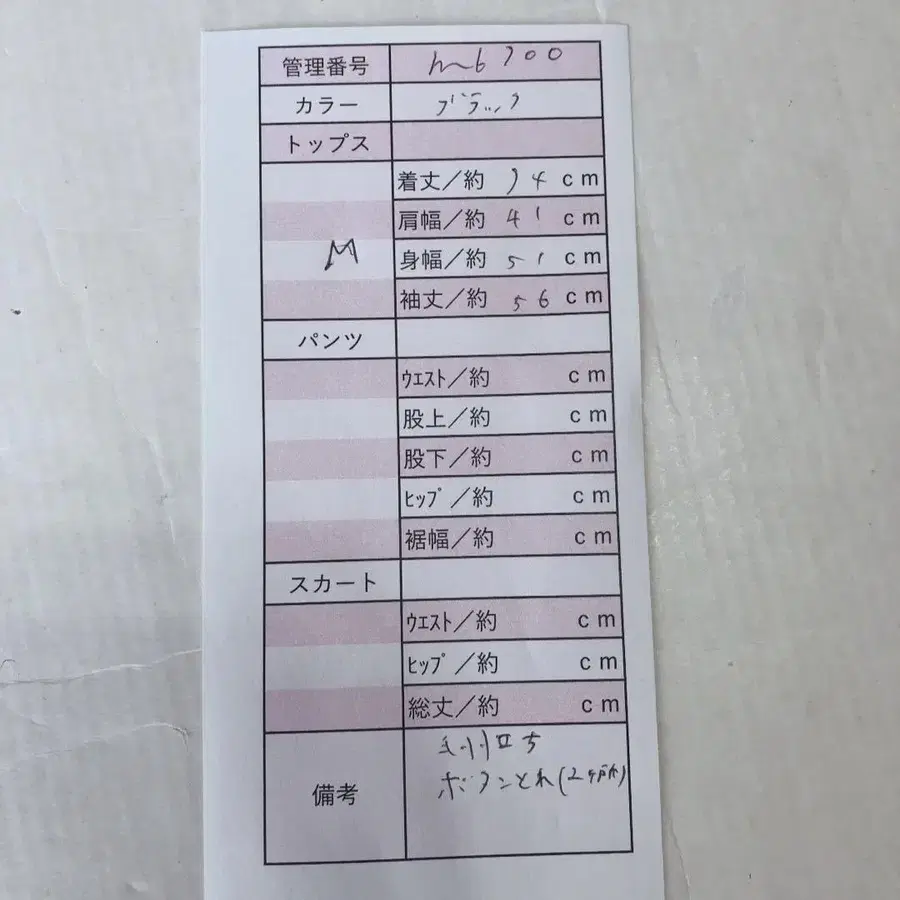 管理番号 hm6700
カラー ブラック
トップス
M
着丈／約 74 cm
肩幅／約 41 cm
身幅／約 51 cm
袖丈／約 56 cm
パンツ
ｳｴｽﾄ／約 cm
股上／約 cm
股下／約 cm
ﾋｯﾌﾟ／約 cm
裾幅／約 cm
スカート
ｳｴｽﾄ／約 cm
ﾋｯﾌﾟ／約 cm
総丈／約 cm
備考
毛羽立ち
ボタンとれ(2ヶ所)